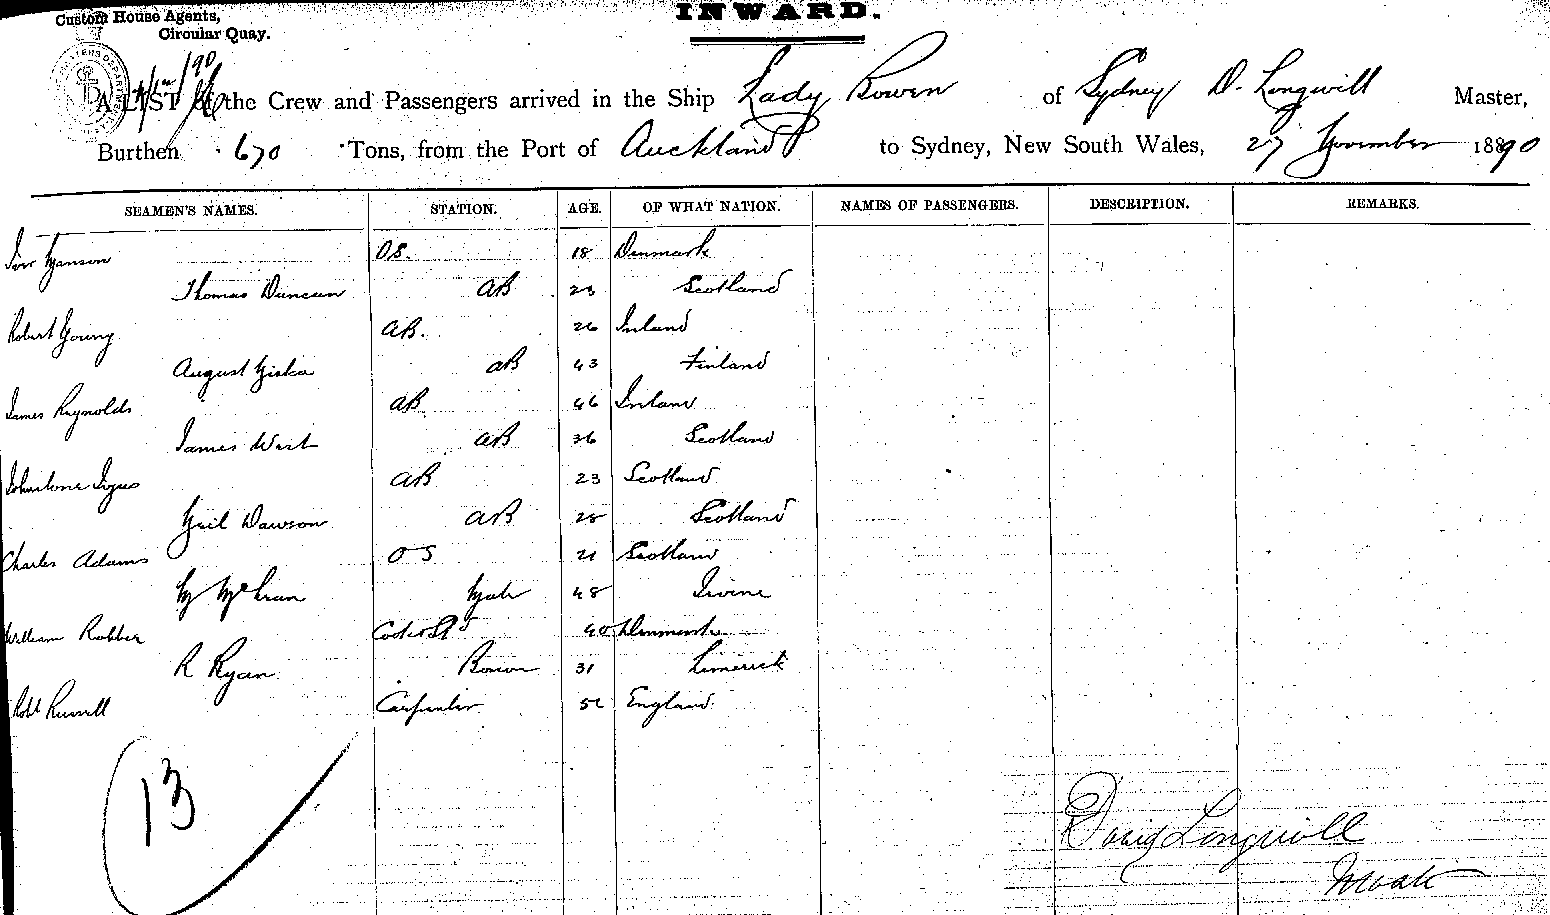 Custom House Agents,
Circular Quay.
INWARD.
A LIST of the Crew and Passengers arrived in the Ship Lady Bowen of Sydney D. Longwill Master,
Burthen 670 Tons, from the Port of Auckland to Sydney, New South Wales, 27 November 1890
SEAMEN'S NAMES. STATION. AGE. OF WHAT NATION. NAMES OF PASSENGERS. DESCRIPTION. REMARKS.
OS. 18 Denmark
Thomas Duncan AB 23 Scotland
Robert Young AB. 26 Ireland
August AB 43 Finland
James Reynolds AB 46 Ireland
James West AB 36 Scotland
AB 23 Scotland
Neil Dawson AB 28 Scotland
Charles Adams OS 21 Scotland
Mate 48 Irvine
William Robber Cook & Std 40 Denmark
R Ryan 31 Limerick
Robt Russell Carpenter England
13
David Longwill